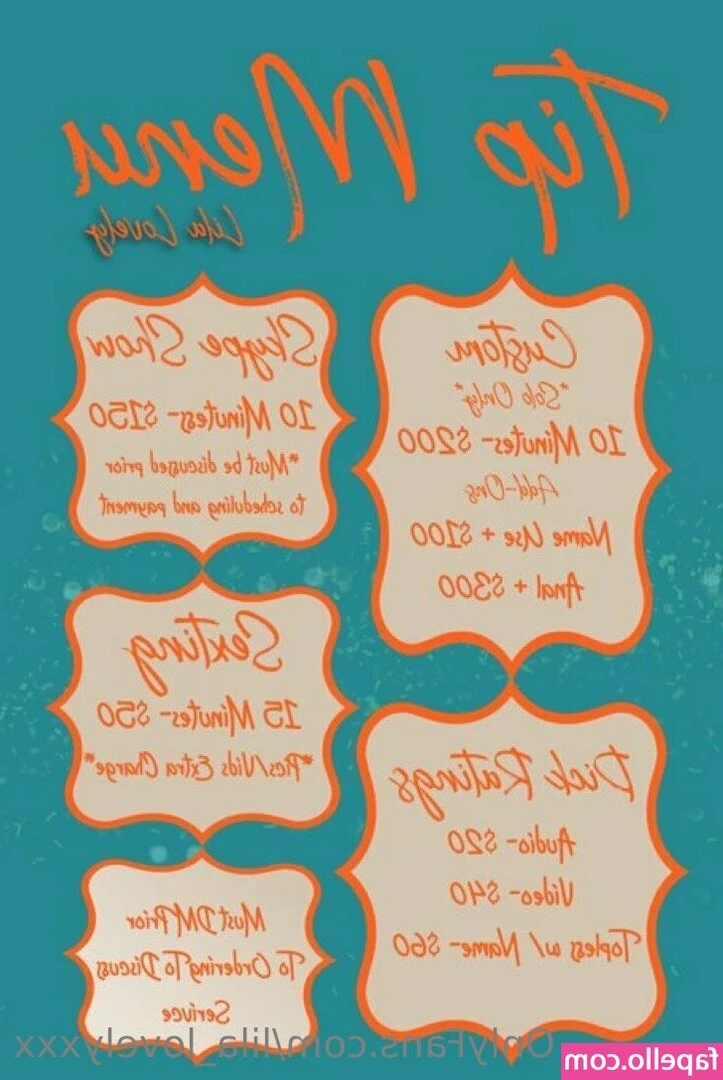 Tip Menu
Lila Lovely
Custom
*Solo Only*
10 Minutes- $200
Add-Ons
Name Use + $100
Anal + $300
Dick Ratings
Audio- $20
Video- $40
Topless w/ Name- $60
Skype Show
10 Minutes- $150
*Must be discussed prior
to scheduling and payment
Sexting
15 Minutes- $50
*Pics/Vids Extra Charge*
Must DM Prior
To Ordering To Discuss
Serivce
OnlyFans.com/lila_lovelyxxx
fapello.com